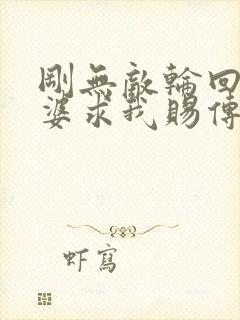 剛無敵輪回
婆求我賜傳
虾寫